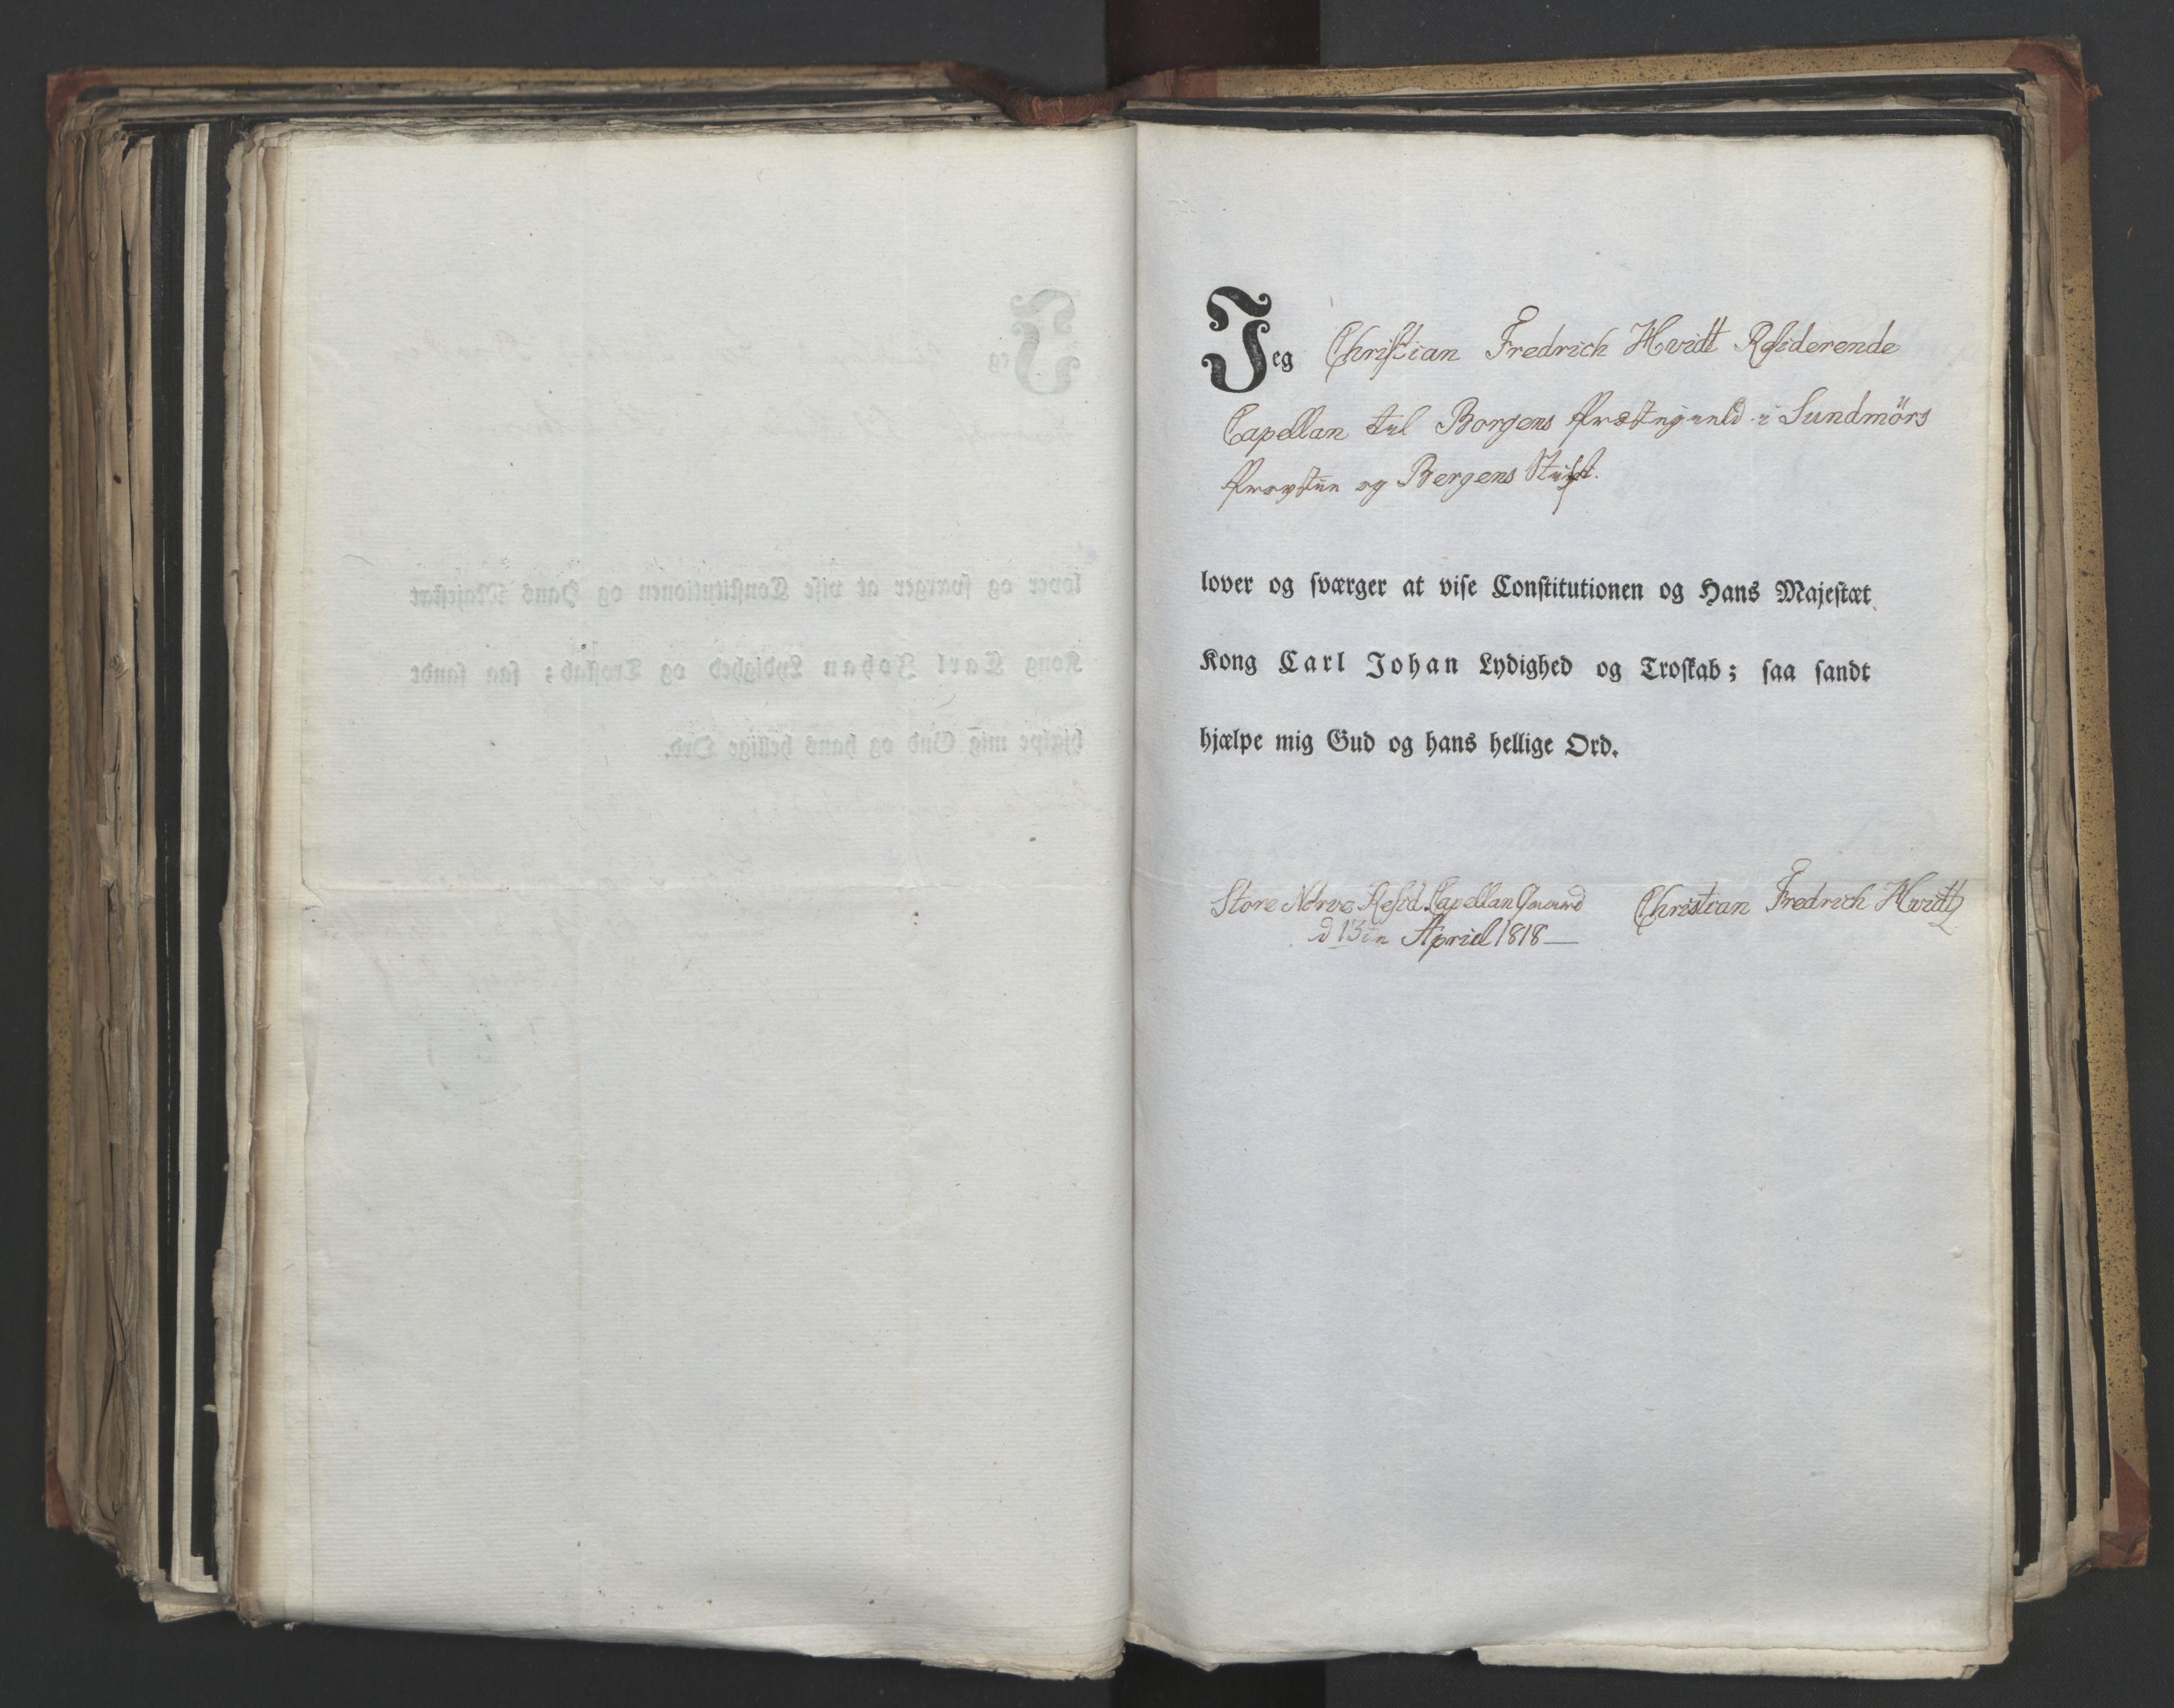 Jeg Christian Fredrich Hvidt Residerende
Capellan til Borgens Præstegield i Sundmörs
Provstie og Bergens Stift.
lover og sværger at vise Constitutionen og Hans Majestæt
Kong Carl Johan Lydighed og Troskab; saa sandt
hjælpe mig Gud og hans hellige Ord.
Store Nørve Resid. Capellan Gaard
d 13de April 1818 —
Christian Fredrich Hvidt